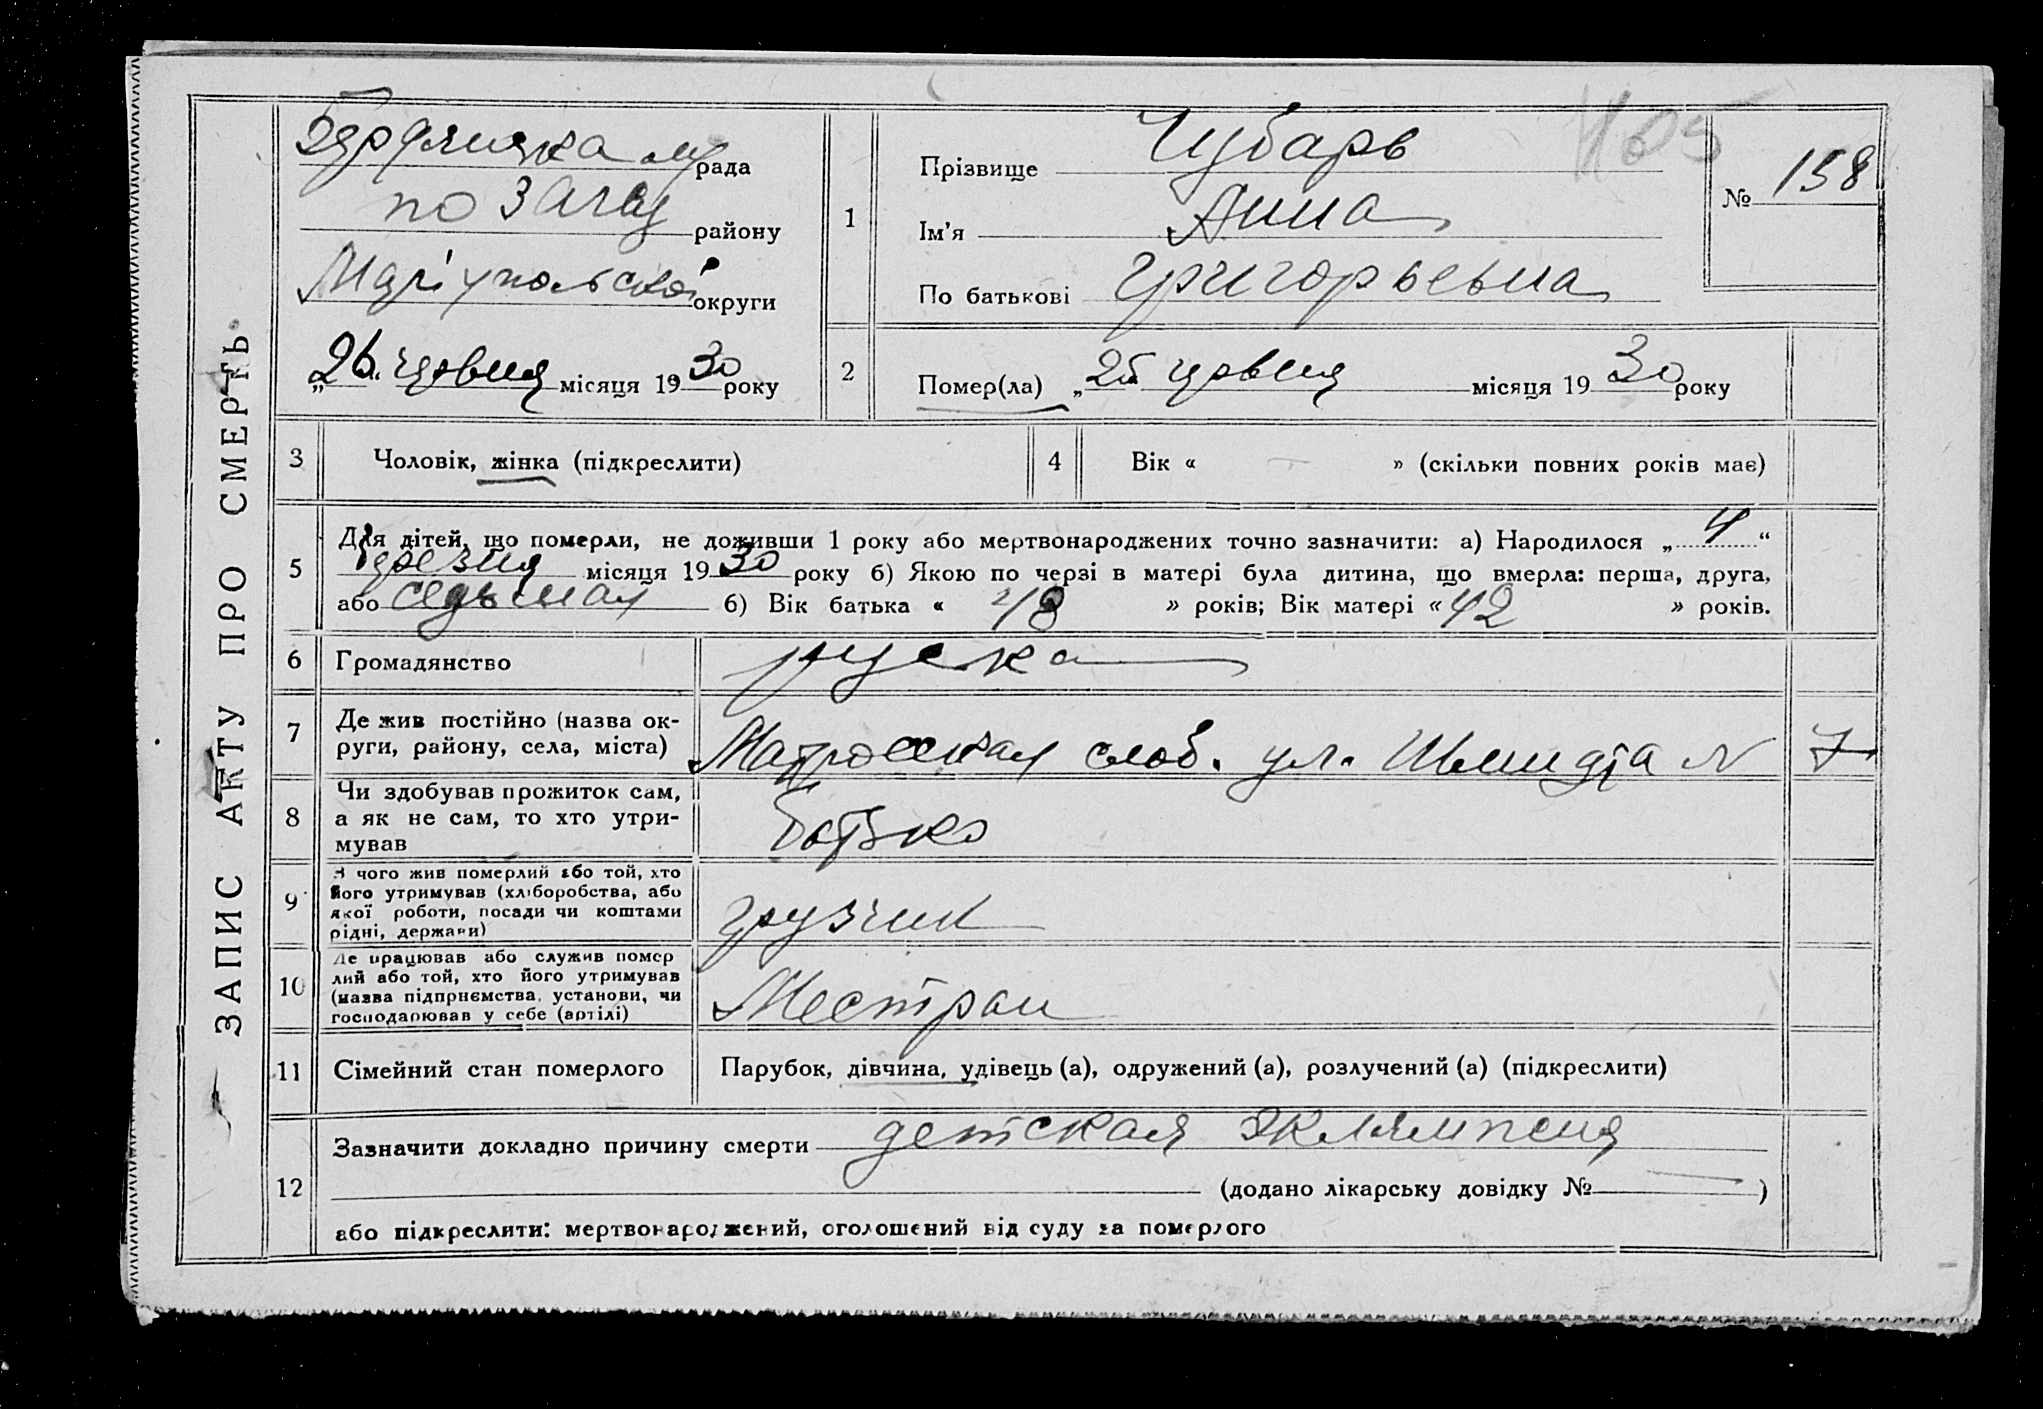 ЗАПИС АКТУ ПРО СМЕРТЬ
Бердянська м рада
по ЗАГСу району
Маріупольской округи
„26“ червня місяця 1930 року
1
Прізвище Чубарь
Ім'я Анна
По батькові Григорьевна
405
№ 158
2
Помер(ла) „25 червня місяця 1930 року
3 Чоловік, жінка (підкреслити)
4 Вік « — » (скільки повних років має)
5 Для дітей, що померли, не доживши 1 року або мертвонароджених точно зазначити: а) Народилося „4“
березня місяця 1930 року б) Якою по черзі в матері була дитина, що вмерла: перша, друга,
або седьмая б) Вік батька « 48 » років; Вік матері « 42 » років.
6 Громадянство руска
7 Де жив постійно (назва ок-
руги, району, села, міста) Матросская слоб. ул. Шмидта N 7
8 Чи здобував прожиток сам,
а як не сам, то хто утри-
мував батько
9 З чого жив померлий або той, хто
його утримував (хліборобства, або
якої роботи, посади чи коштами
рідні, держави) грузчик
10 Де працював або служив помер
лий або той, хто його утримував
(назва підприємства, установи, чи
господарював у себе (артілі) Местран
11 Сімейний стан померлого Парубок, дівчина, удівець (а), одружений (а), розлучений (а) (підкреслити)
12 Зазначити докладно причину смерти детская эклямпсия
(додано лікарську довідку № — )
або підкреслити: мертвонароджений, оголошений від суду за померлого